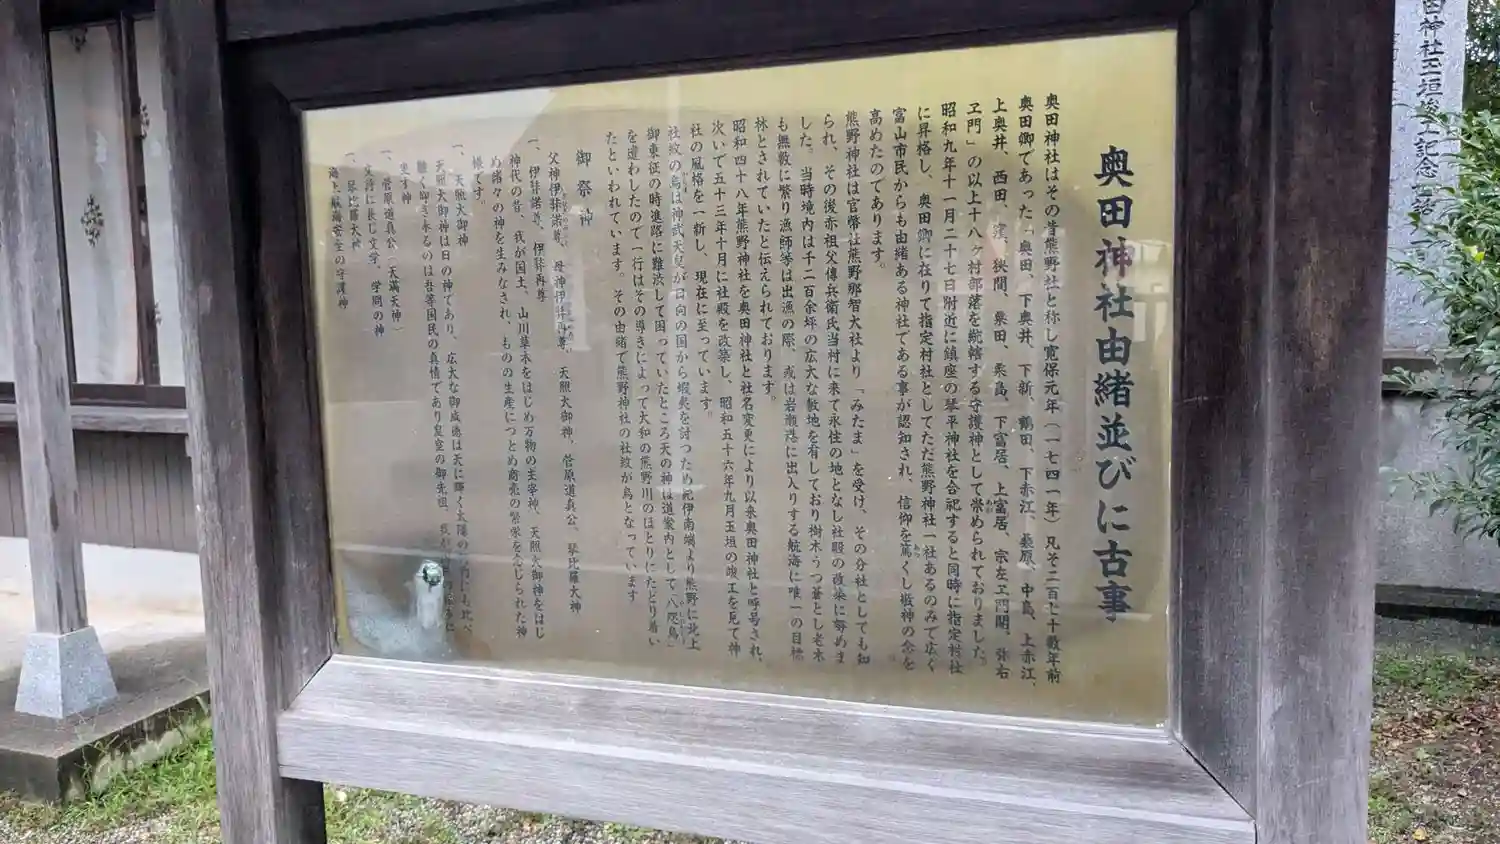 奥田神社由緒並びに古事
奥田神社はその昔熊野社と称し寛保元年(一七四一年)凡そ二百七十数年前
奥田郷であった「奥田、下奥井、下新、鶴田、下赤江、桑原、中島、上赤江、
上奥井、西田、窪、狭間、粟田、粟島、下富居、上富居、宗左ヱ門開、弥右
ヱ門」の以上十八ヶ村部落を統轄する守護神として崇められておりました。
昭和九年十一月二十七日附近に鎮座の琴平神社を合祀すると同時に指定村社
に昇格し、奥田郷に在りて指定村社としてただ熊野神社一社あるのみで広く
富山市民からも由緒ある神社である事が認知され、信仰を篤くし敬神の念を
高めたのであります。
熊野神社は官幣社熊野那智大社より「みたま」を受け、その分社としても知
られ、その後赤祖父傳兵衛氏当村に来て永住の地となし社殿の改築に努めま
した。当時境内は千二百余坪の広大な敷地を有しており樹木うつ蒼とし老木
も無数に繁り漁師等は出漁の際、或は岩瀬港に出入りする航海に唯一の目標
林とされていたと伝えられております。
昭和四十八年熊野神社を奥田神社と社名変更により以来奥田神社と呼号され、
次いで五十三年十月に社殿を改築し、昭和五十六年九月玉垣の竣工を見て神
社の風格を一新し、現在に至っています。
社紋の烏は神武天皇が日向の国から蝦夷を討つため紀伊南端より熊野に北上
御東征の時進路に難渋して困っていたところ天の神は道案内として八咫烏
を遣わしたので一行はその導きによって大和の熊野川のほとりにたどり着い
たといわれています。その由緒で熊野神社の社紋が烏となっています
御祭神
父神伊弉諾尊、母神伊弉冉尊、天照大御神、菅原道真公、琴比羅大神
一、伊弉諾尊、伊弉冉尊
神代の昔、我が国土、山川草木をはじめ万物の主宰神、天照大御神をはじ
め諸々の神を生みなされ、ものの生産につとめ商売の繁栄を念じられた神
様です。
一、天照大御神
天照大御神は日の神であり、広大な御威徳は天に輝く太陽の
輝く御き永るのは吾等国民の真情であり皇室の御先祖、
生す神
一、菅原道真公(天満天神)
文詩に長じ文学、学問の神
一、琴比羅大神
海上航海安全の守護神
田神社玉垣竣工記念